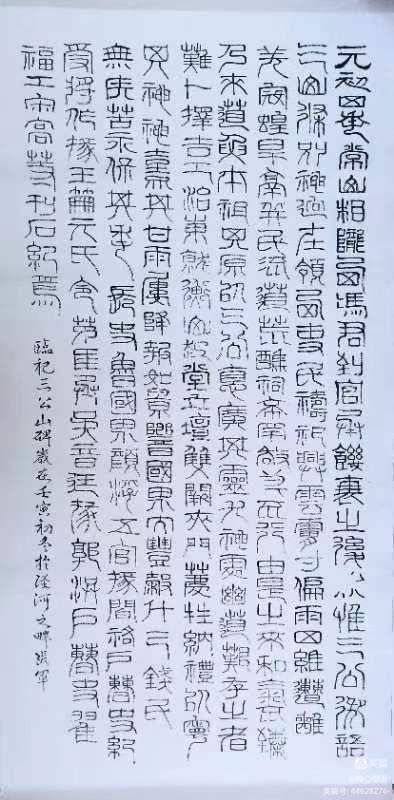 元初四年常山相隴西馮君到官承饑衰之後惟三公御語
三山條別神迥在領西吏民禱祀興雲膚寸偏雨四維遭離
羌寇蝗旱鬲并民流道荒醮祠希罕敬奠不行由是之來和氣不臻
乃來道要本祖其原以三公德廣其靈尤神處幽道艱存之者
難卜擇吉工治東就衡山起堂立壇雙闕夾門薦牲納禮以寧
其神神熹其甘雨屢降報如景響國界大豐穀什三錢民
無疾苦永保其年長史魯國界顏浮五官掾閻祐戶曹史紀
受將作掾王笧元氏令茅匡丞吳音廷掾郭洪戶曹史翟
福工宋高等刊石紀焉
臨祀三公山碑歲在壬寅初冬於涇河之畔張軍
美篇
美篇号:44628276